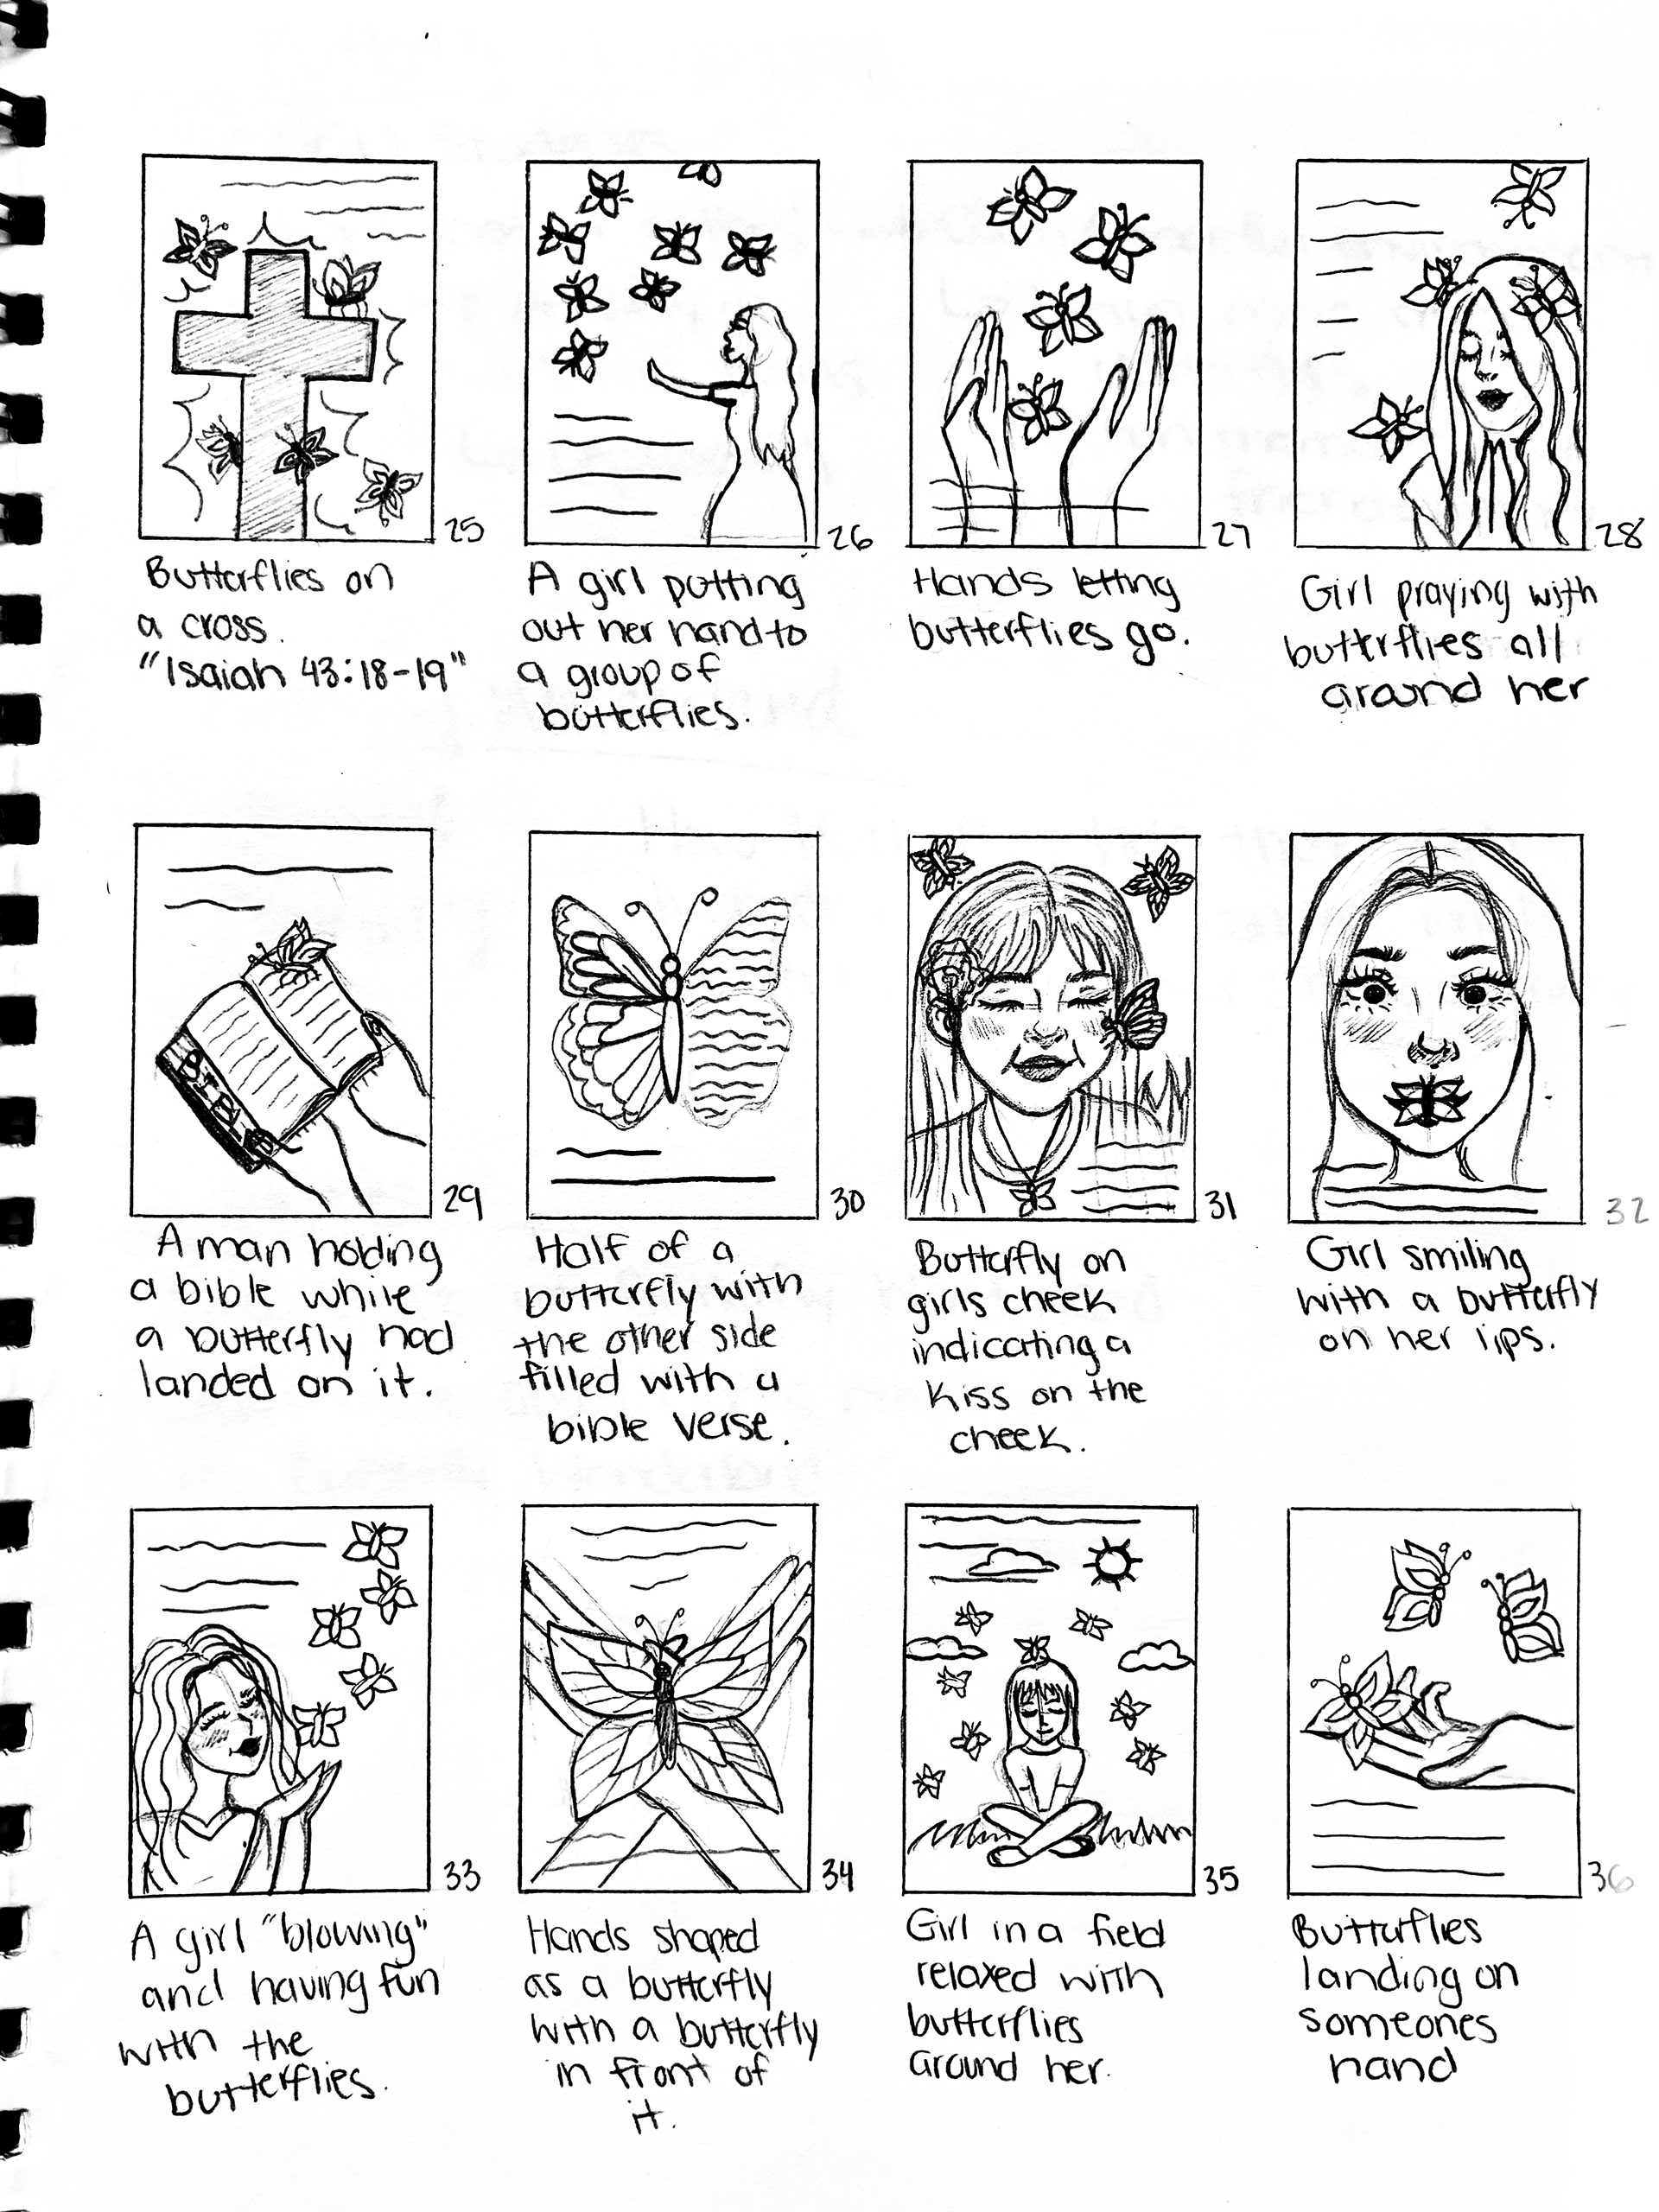 25
26
27
28
Butterflies on
a cross.
"Isaiah 43:18-19"
A girl putting
out her hand to
a group of
butterflies.
Hands letting
butterflies go.
Girl praying with
butterflies all
around her
BIBLE
29
30
31
32
A man holding
a bible while
a butterfly had
landed on it.
Half of a
butterfly with
the other side
filled with a
bible verse.
Butterfly on
girls cheek
indicating a
kiss on the
cheek.
Girl smiling
with a butterfly
on her lips.
33
34
35
36
A girl "blowing"
and having fun
with the
butterflies.
Hands shaped
as a butterfly
with a butterfly
in front of
it.
Girl in a field
relaxed with
butterflies
around her.
Butterflies
landing on
someones
hand